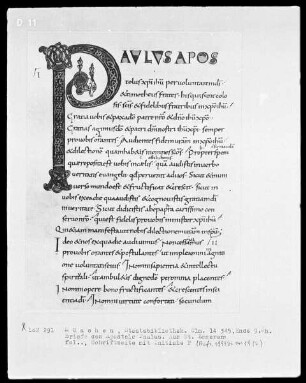 PAULUS APOS
tolus xpi ihu per voluntatem di
& timotheus frater his qui sunt colo
sis scis & fidelibus fratribus in xpo ihu
Gratia vobis & pax a do patre nro & dno ihu xpo
Gratias agimus do & patri dni nostri ihu xpi semper
pro vobis orantes Audientes fidem vram in xpo ihu
& dilectionem quam habetis in scos omnes Propter spem
que reposita est vobis in celis quam audistis in verbo
veritatis evangelii quod pervenit ad vos Sicut & in uni
verso mundo est & fructificat & crescit Sicut in
vobis ex ea die qua audistis & cognovistis gratiam di
in veritate Sicut didicistis ab epafra carissimo con
servo nro qui est fidelis pro vobis minister xpi ihu
Qui etiam manifestavit nobis dilectionem vram in spu
Ideo & nos ex qua die audivimus Non cessamus
pro vobis orantes & postulantes ut impleamini agniti
one voluntatis eius In omni sapientia & intellectu
spiritali ut ambuletis digne do per omnia placentes
In omni opere bono fructificantes & crescentes in sci
entia di In omni virtute confortati secundum
München, Staatsbibliothek, Clm. 14 345, Ende 9.Jh.
Briefe des Apostels Paulus. Aus St. Emmeram